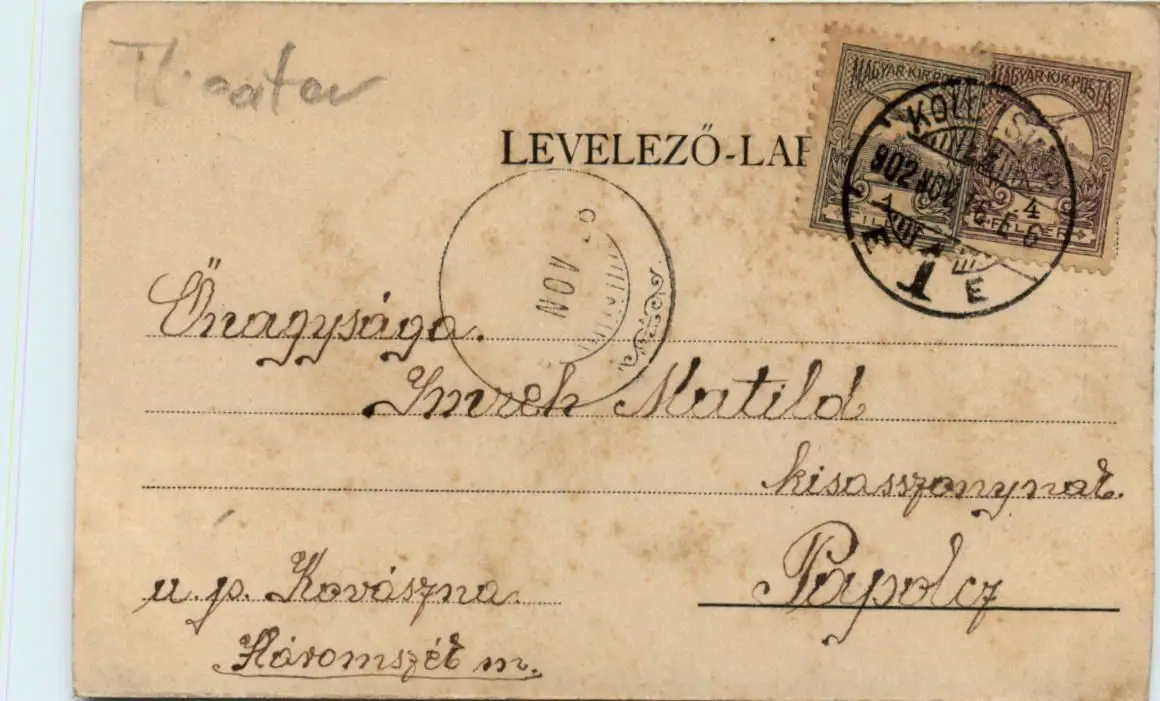 Theater
LEVELEZŐ-LAP
MAGYAR·KIR·POSTA
MAGYAR·KIR·POSTA
1
FILLÉR
4
FILLÉR
KOLOZSVÁR
902 NOV
NOV
Őnagysága.
Imreh Matild
kisasszonynak.
Papolcz
u. p. Kovászna
Háromszék m.